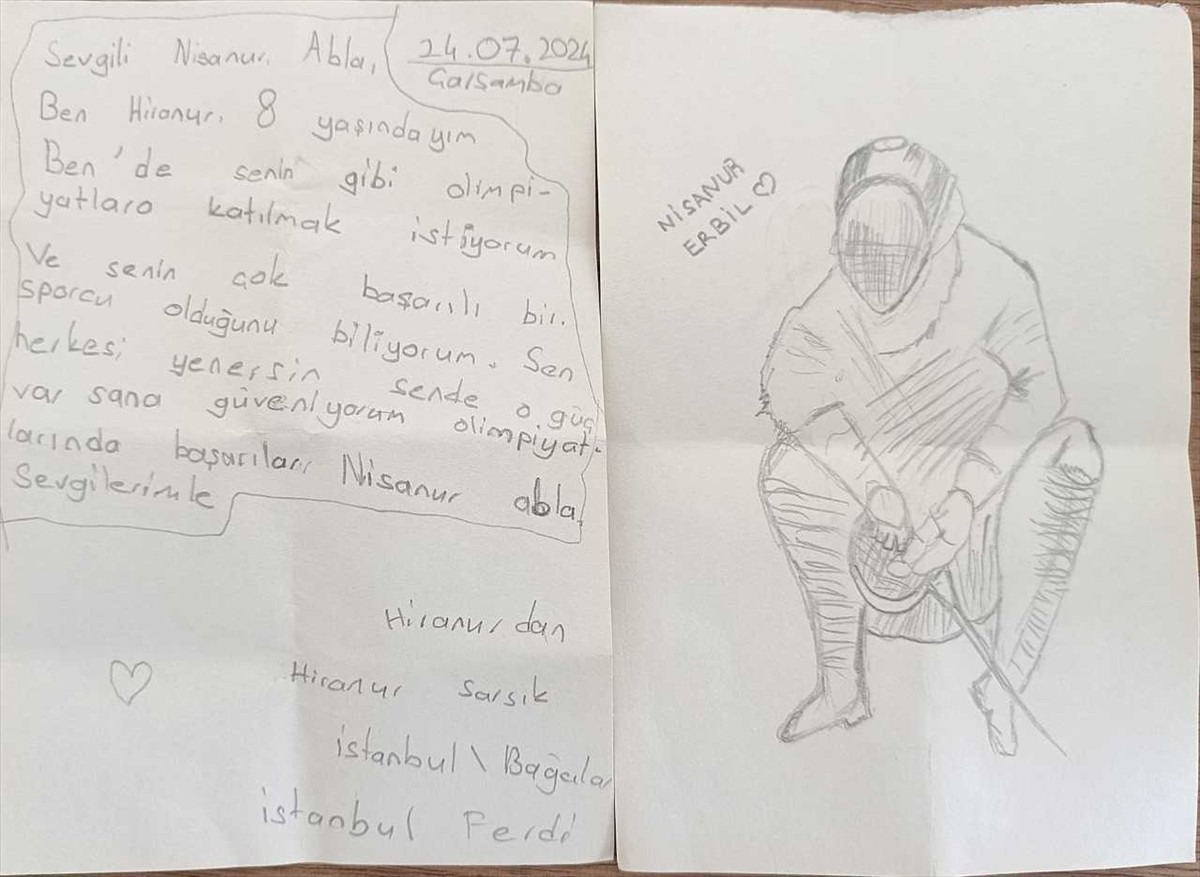 Sevgili Nisanur Abla,
24.07.2024
Çarşamba
Ben Hiranur. 8 yaşındayım
Ben'de senin gibi olimpi-
yatlara katılmak istiyorum
Ve senin çok başarılı bir.
sporcu olduğunu biliyorum. Sen
herkesi yenersin sende o güç
var sana güveniyorum olimpiyat-
larında başarılar, Nisanur abla,
Sevgilerimle
Hiranur dan
Hiranur Sarsık
istanbul \ Bağcılar
istanbul Ferdi
NİSANUR
ERBİL ♡